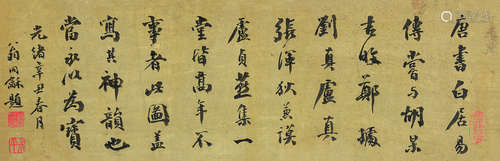 唐書白居易
傳嘗与胡杲
吉旼鄭據
劉真盧真
張渾狄兼謨
盧貞燕集一
堂皆高年不
事者此圖盖
寫其神韻也
當永以為寶
光緒辛丑春月
翁同龢題